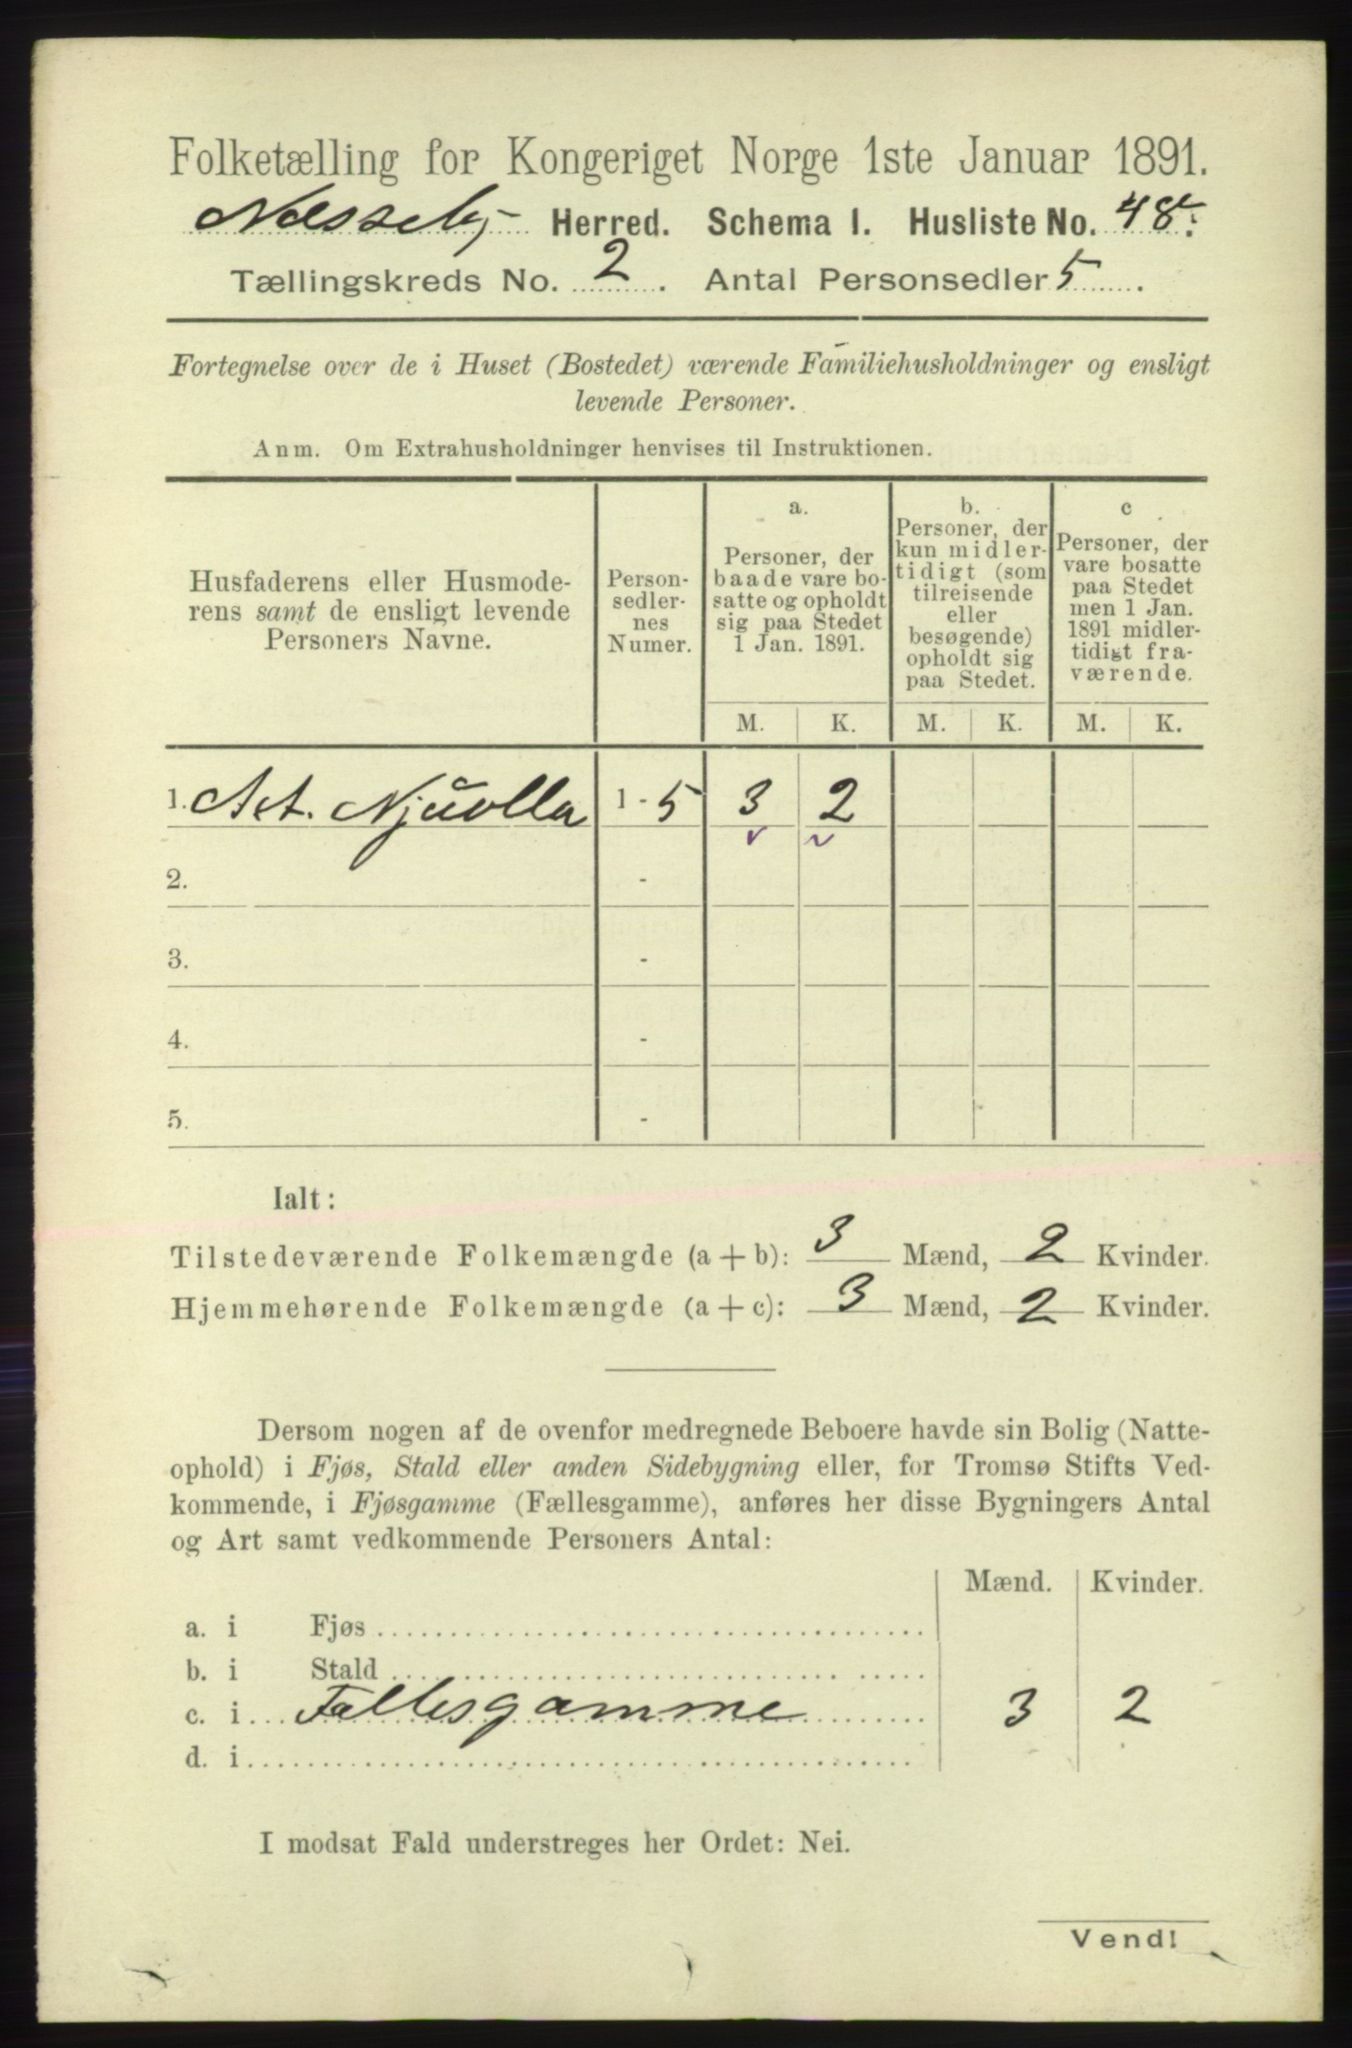 Folketælling for Kongeriget Norge 1ste Januar 1891.
Næsseby Herred. Schema I. Husliste No. 48.
Tællingskreds No. 2. Antal Personsedler 5.
Fortegnelse over de i Huset (Bostedet) værende Familiehusholdninger og ensligt
levende Personer.
Anm. Om Extrahusholdninger henvises til Instruktionen.
Husfaderens eller Husmode-
rens samt de ensligt levende
Personers Navne.
Person-
sedler-
nes
Numer.
a.
Personer, der
baade vare bo-
satte og opholdt
sig paa Stedet
1 Jan. 1891.
b.
Personer, der
kun midler-
tidigt (som
tilreisende
eller
besøgende)
opholdt sig
paa Stedet.
c
Personer, der
vare bosatte
paa Stedet
men 1 Jan.
1891 midler-
tidigt fra-
værende.
M. K. M. K. M. K.
1. Njuolla 1 - 5 3 2
2. -
3. -
4. -
5. -
Ialt:
Tilstedeværende Folkemængde (a + b): 3 Mænd, 2 Kvinder.
Hjemmehørende Folkemængde (a + c): 3 Mænd, 2 Kvinder.
Dersom nogen af de ovenfor medregnede Beboere havde sin Bolig (Natte-
ophold) i Fjøs, Stald eller anden Sidebygning eller, for Tromsø Stifts Ved-
kommende, i Fjøsgamme (Fællesgamme), anføres her disse Bygningers Antal
og Art samt vedkommende Personers Antal:
Mænd. Kvinder.
a. i Fjøs
b. i Stald
c. i Fællesgamme 3 2
d. i
I modsat Fald understreges her Ordet: Nei.
Vend!